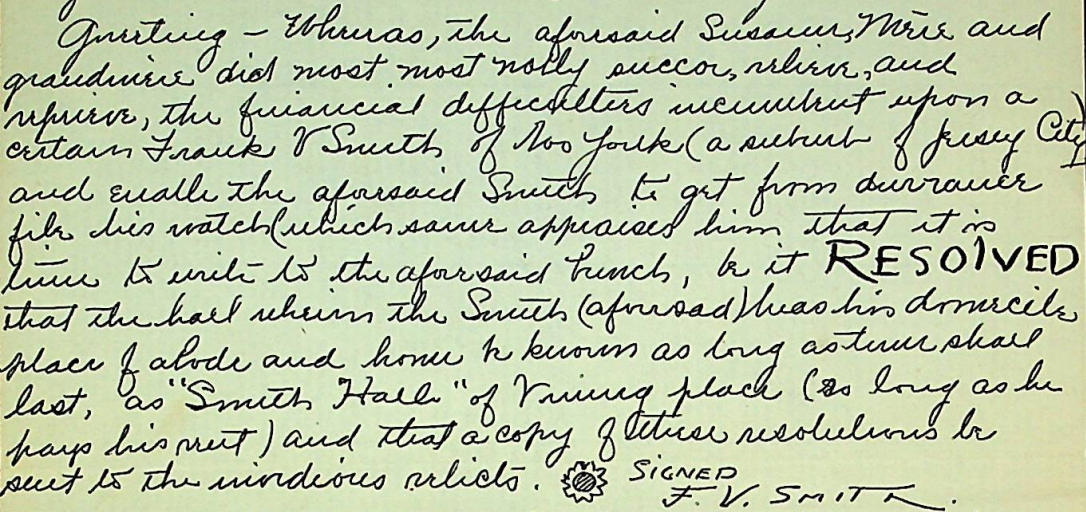 Greeting – Whereas, the aforesaid Susann, Mère and
grandmère did most most nobly succor, relieve, and
reprieve, the financial difficulters incumbent upon a
certain Frank V Smith of Noo Yoik (a suburb of Jersey City)
and enable the aforsaid Smith to get from durrance
file his watch (which same appraises him that it is
time to write to the aforesaid bunch, be it RESOlVED
that the hall wherin the Smith (aforsad) has his domicile
place of abode and home be known as long as time shall
last, as "Smith Hall" of Vining place (so long as he
pays his rent) and that a copy of these resolutions be
sent to the relicts.
SIGNED
F. V. SMITH.